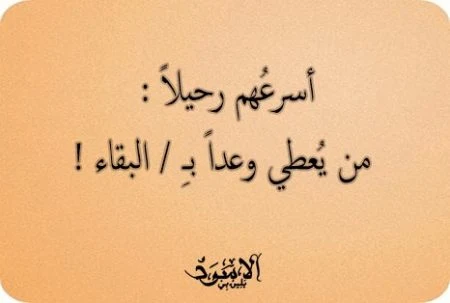 أسرعُهم رحيلاً :
من يُعطي وعداً بـِ / البقاء !